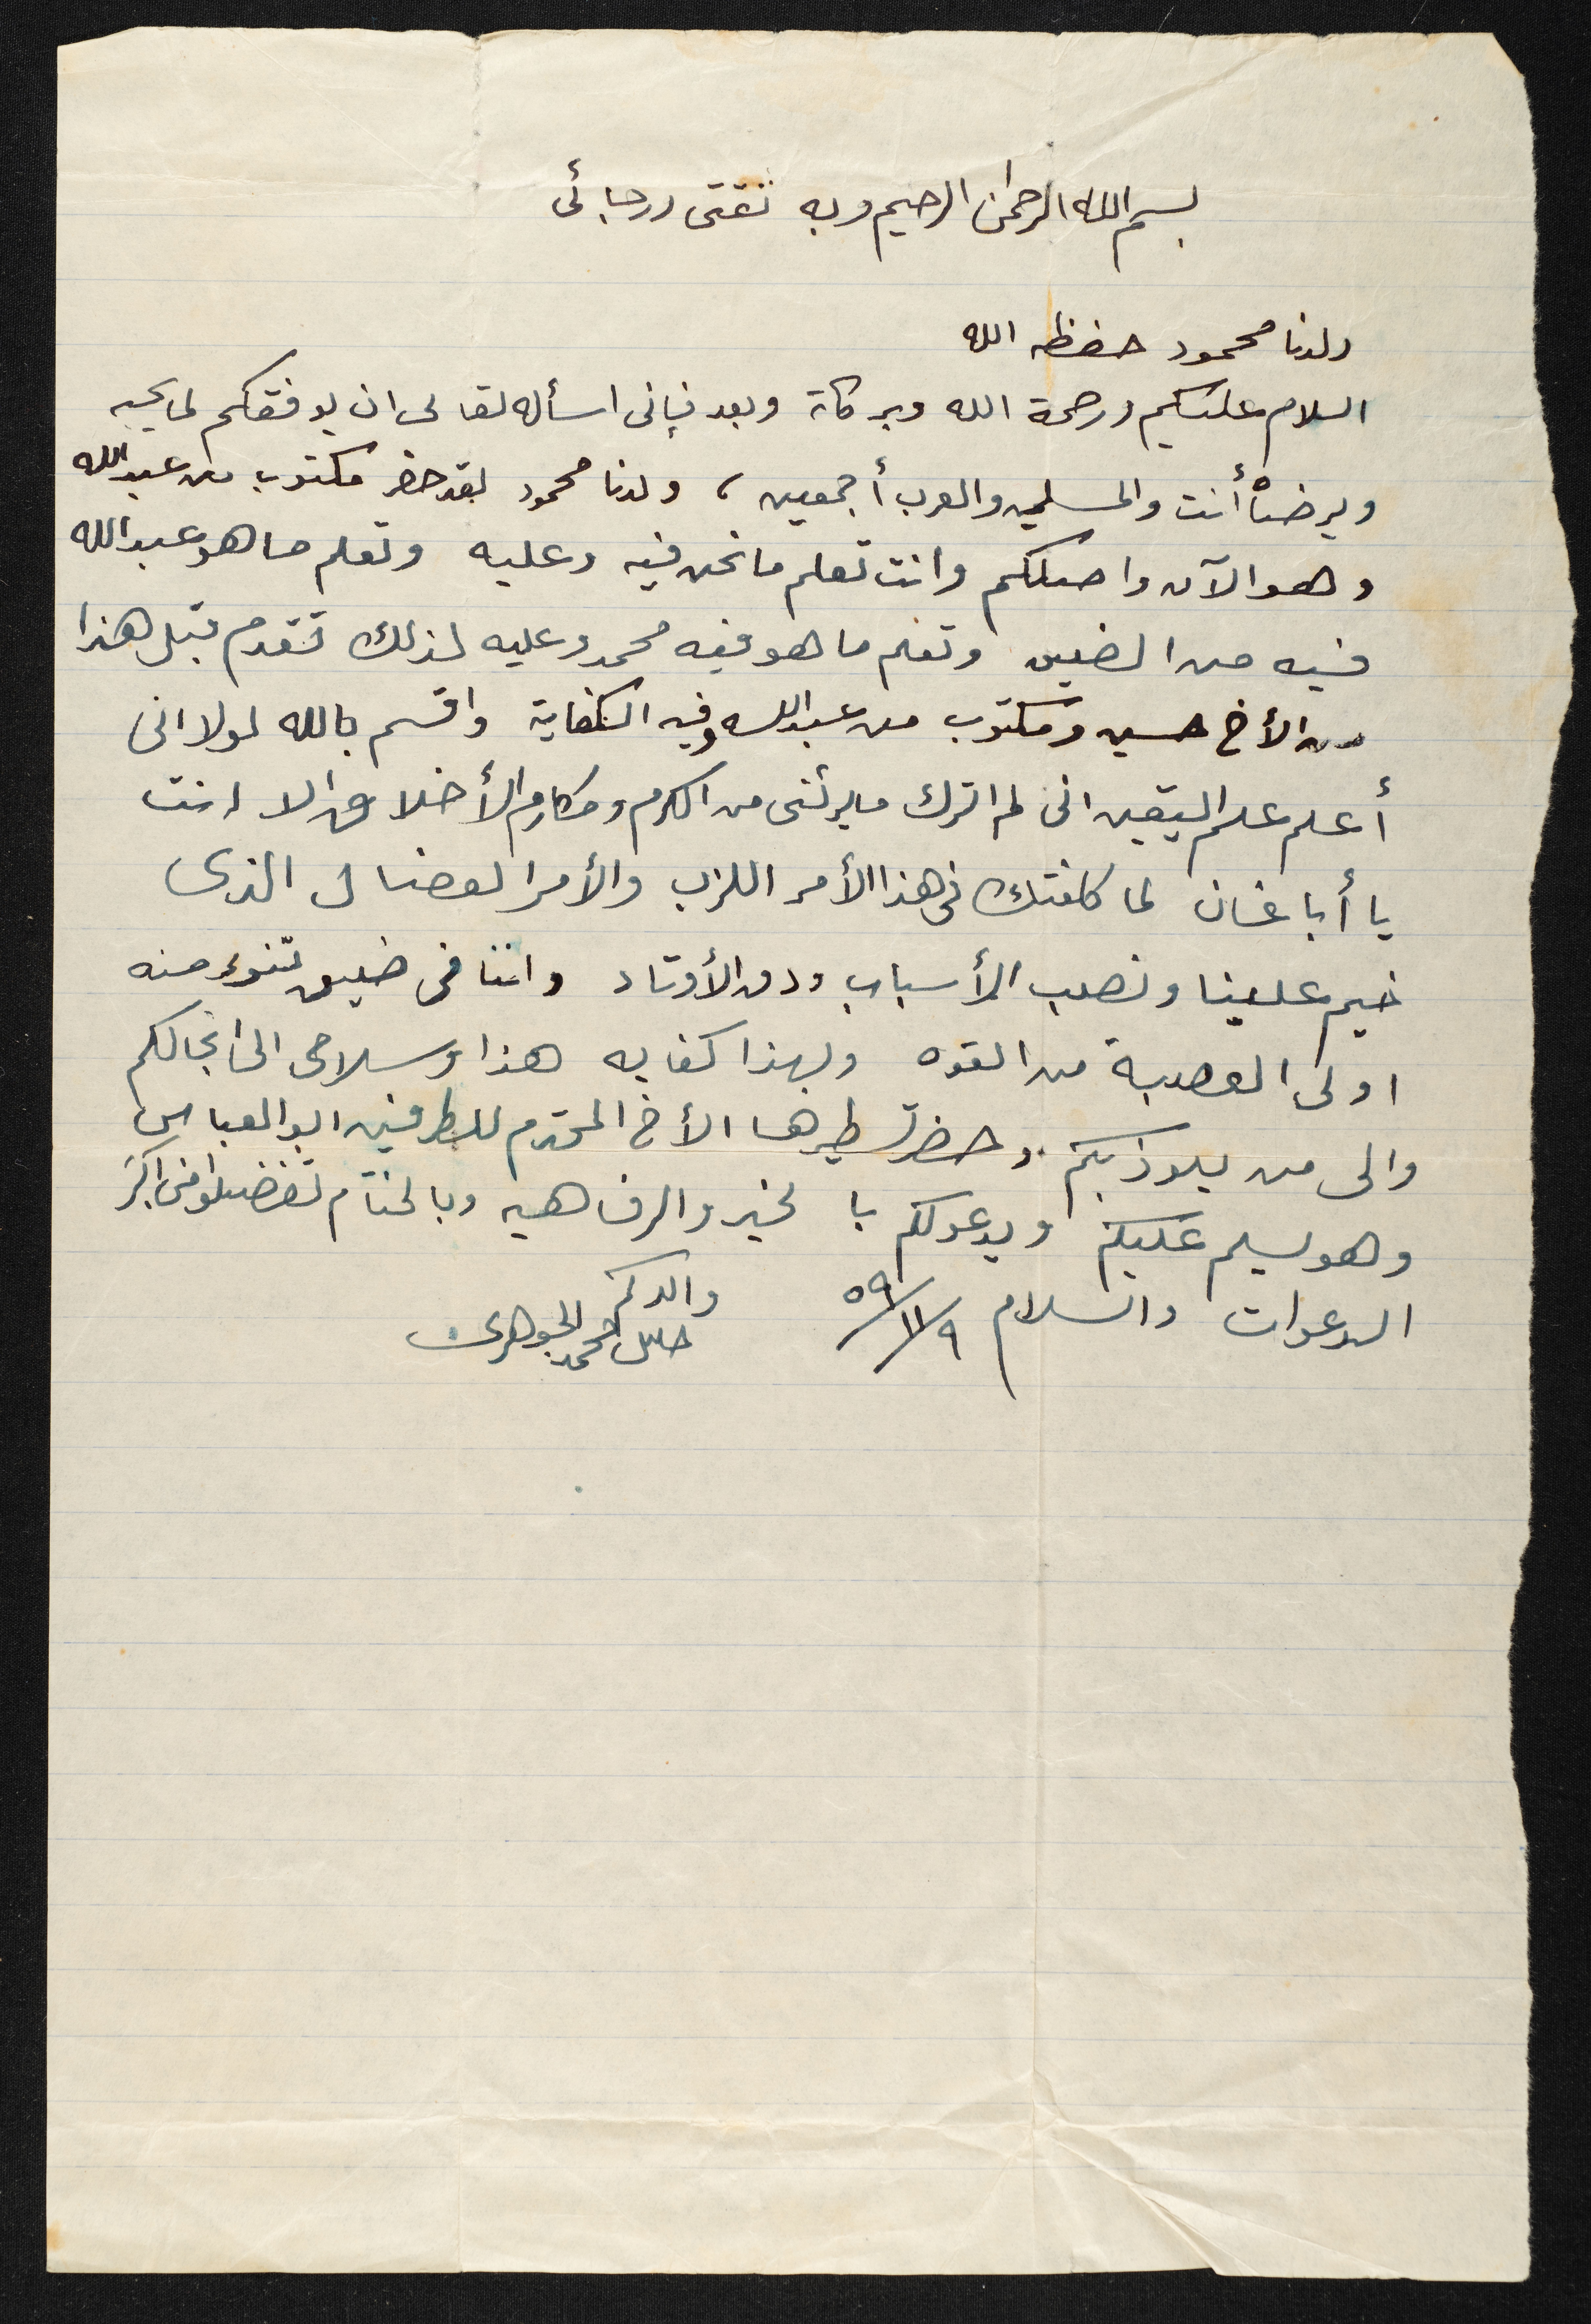 بسم الله الرحمن الرحيم وبه ثقتى ورجائى
ولدنا محمود حفظه الله
السلام عليكم ورحمة الله وبركاة وبعد فإنى اسأله تعالى ان يوفقكم لما يحبه
ويرضاه أنت والمسلمين والعرب أجمعين ، ولدنا محمود لقد حضر مكتوب من عبدالله
وهو الآن واصلكم وانت تعلم ما نحن فيه وعليه وتعلم ما هو عبدالله
فيه من الضيق وتعلم ما هو فيه محمد وعليه لذلك تقدم قبل هذا
من الأخ حسين ومكتوب من عبدالله وفيه الكفاية واقسم بالله لولا انى
أعلم علم اليقين انى لم اترك من الكرم ومكارم الأخلاق الا انت
يا أبا غسان لما كلفتك فى هذا الأمر اللزب والأمر العضال الذى
خيم علينا ونصب الأسباب ودق الأوتاد واننا فى ضيق تنوء منه
اولى العصبة من القوه وبهذا كفايه هذا وسلامى الى انجالكم
والى من يلوذ بكم وحضر تسطيرها الأخ المحترم للطرفين ابو العباس
وهو يسلم عليكم ويدعولكم بالخير والرفاهيه وبالختام تفضلوا منى اكبر
الدعوات والسلام ٩/١١/٥٩
والدكم
محمد الجوهرى